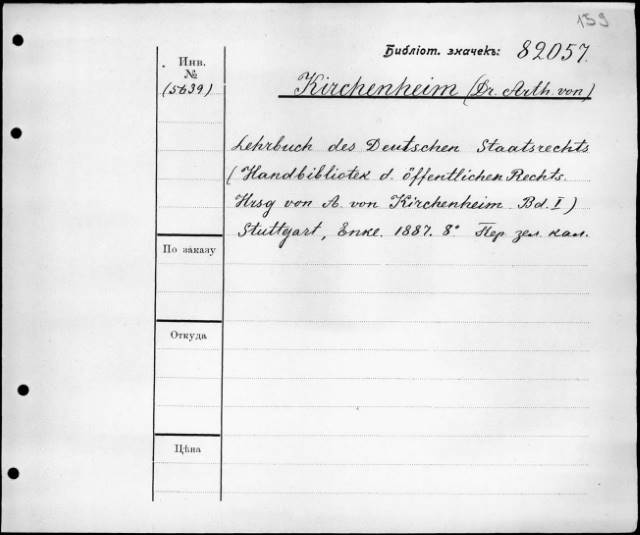 159
Библіот. значекъ: 82057.
Инв.
№
(5639)
Kirchenheim (Dr. Arth. von)
Lehrbuch des Deutschen Staatsrechts
(Handbibliotek d. öffentlichen Rechts.
Hrsg von A. von Kirchenheim Bd. I)
Stuttgart, Enke. 1887. 8° Пер. зел. кал.
По заказу
Откуда
Цѣна